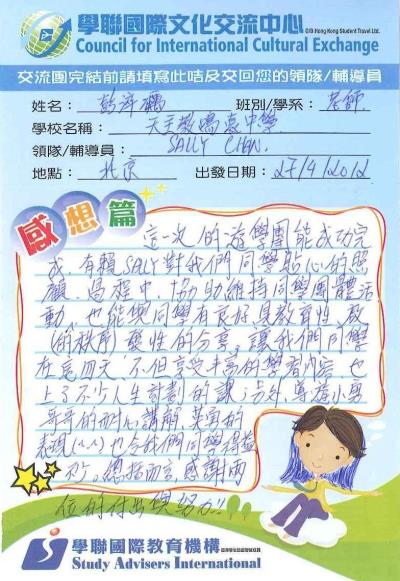 學聯國際文化交流中心
C/O Hong Kong Student Travel Ltd.
Council for International Cultural Exchange
交流團完結前請填寫此咭及交回您的領隊/輔導員
姓名： 彭 班別/學系： 老師
學校名稱： 天主教鳴遠中學
領隊/輔導員： SALLY CHAN.
地點： 北京 出發日期： 27/4/2012
感想篇
這一次的遊學團能成功完
成，有賴SALLY對我們同學貼心的照
顧。過程中，協助維持同學團體活
動，也能與同學有良好具教育性、啟
(的秩序) 發性的分享，讓我們同學
在這四天，不但享受丰富的學習內容，也
上了不少人生計劃的課；另外，導遊小勇
哥哥的耐心講解，英宣的
表現(^.^)也令我們同學得益
不少。總括而言，感謝兩
位的付出與努力!!
學聯國際教育機構
Study Advisers International